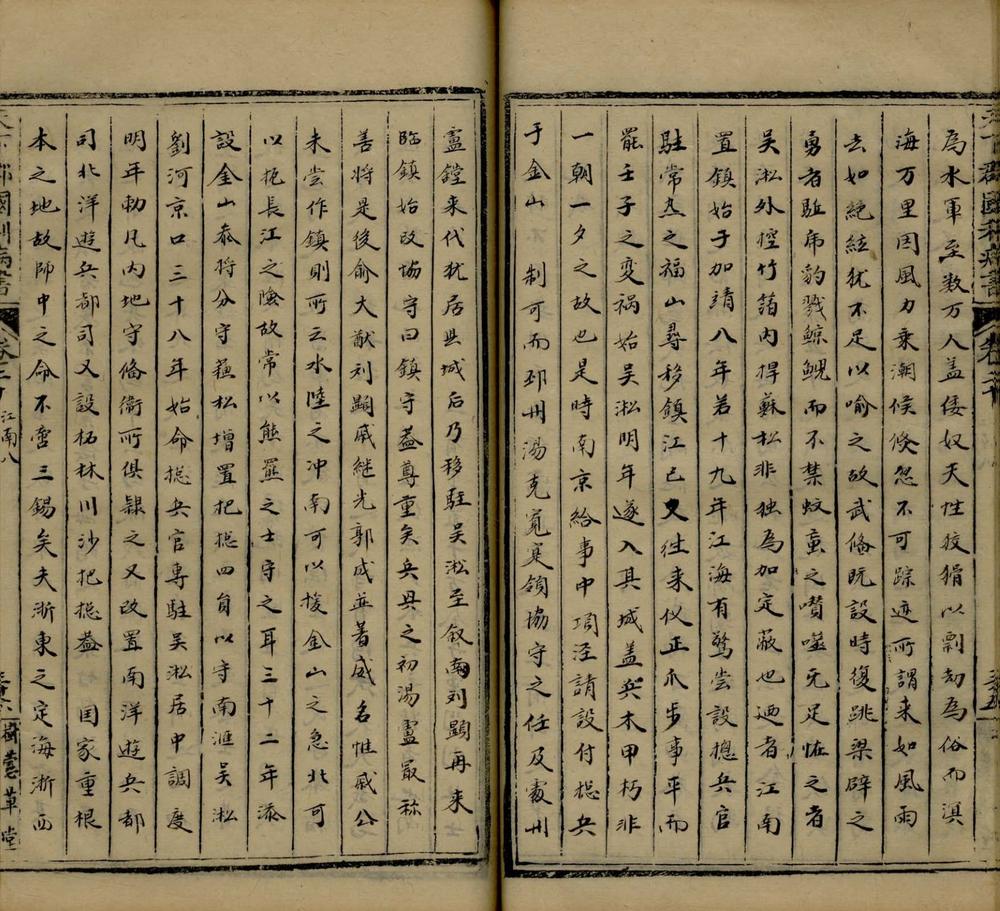 為水軍至數万人盖倭奴天性狡猾以剽刼為俗而溟
海万里因風力乘潮候倏忽不可踪迹所謂来如風雨
去如絶絃犹不足以喻之故武俻既設時復跳梁辟之
勇者駈乕豹戮鯨鯢而不禁蚊䖟之噆噬旡足怪之者
吴淞外控竹箔内捍蘇松非独為加定蔽也廼者江南
置鎮始于加靖八年若十九年江海有驚尝設揔兵官
駐常𤍠之福山尋移鎮江已又徃来仪正爪步事平而
罷壬子之变祸始吴淞明年遂入其城盖兵木甲朽非
一朝一夕之故也是時南京給事中項泾請設付揔兵
于金山 制可而邳州湯克寬寔領協守之任及䖏州
盧鏜来代犹居县城后乃移駐吴淞至叙南刘顕再来
临鎮始改協守曰鎮守葢尊重矣兵兴之初湯盧㝡称
善将是後俞大猷刘顕戚継光郭成並著威名惟戚公
未尝作鎮則所云水陸之冲南可以援金山之急北可
以扼長江之險故常以熊羆之士守之耳三十二年添
設金山叅将分守蘓松增置把揔四負以守南滙吴淞
劉河京口三十八年始命揔兵官專駐吴淞居中調度
明年勅凡内地守俻衞所俱隸之又改置南洋遊兵都
司北洋遊兵都司又設柘林川沙把揔葢 国家重根
本之地故師中之命不啻三錫矣夫浙東之定海浙西
江南八
樹蕙草堂